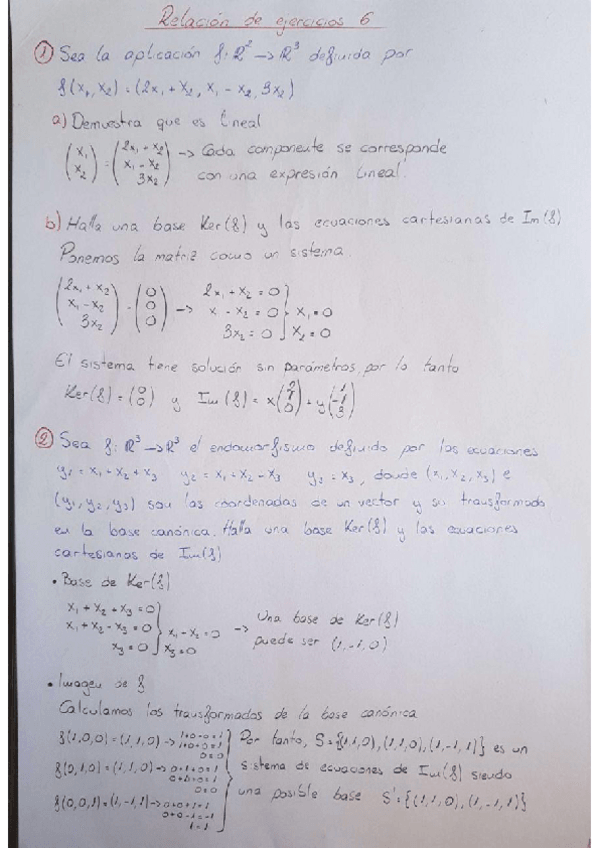 Relación de ejercicios 6
① Sea la aplicación f: R² → R³ definida por
f(x₁, x₂) = (2x₁ + x₂, x₁ - x₂, 3x₂)
a) Demuestra que es lineal
(x₁ x₂) = (2x₁ + x₂ x₁ - x₂ 3x₂) → Cada componente se corresponde
con una expresión lineal.
b) Halla una base Ker(f) y las ecuaciones cartesianas de Im(f)
Ponemos la matriz como un sistema
(2x₁ + x₂ x₁ - x₂ 3x₂) = (0 0 0) → 2x₁ + x₂ = 0
x - x₂ = 0 } x₁ = 0
3x₂ = 0 } x₂ = 0
El sistema tiene solución sin parámetros, por lo tanto
Ker(f) = (0 0) y Im(f) = x(2 1 0) + y(1 -1 3)
② Sea f: R³ → R³ el endomorfismo definido por las ecuaciones
y₁ = x₁ + x₂ + x₃ y₂ = x₁ + x₂ - x₃ y₃ = x₃, donde (x₁, x₂, x₃) e
(y₁, y₂, y₃) son las coordenadas de un vector y su transformado
en la base canónica. Halla una base Ker(f) y las ecuaciones
cartesianas de Im(f)
• Base de Ker(f)
x₁ + x₂ + x₃ = 0
x₁ + x₂ - x₃ = 0 } x₁ - x₂ = 0 → Una base de Ker(f)
x₃ = 0 } x₃ = 0 puede ser (1, -1, 0)
• Imagen de f
Calculamos los transformados de la base canónica
f(1,0,0) = (1,1,0) → 1+0+0=1 1+0+0=1 0=0 } Por tanto, S = {(1,1,0), (1,1,0), (1,-1,1)} es un
f(0,1,0) = (1,1,0) → 0+1+0=1 0+1+0=1 0=0 } sistema de ecuaciones de Im(f) siendo
f(0,0,1) = (1,-1,1) → 0+0+1=1 0+0-1=-1 1=1 } una posible base S' = {(1,1,0), (1,-1,1)}